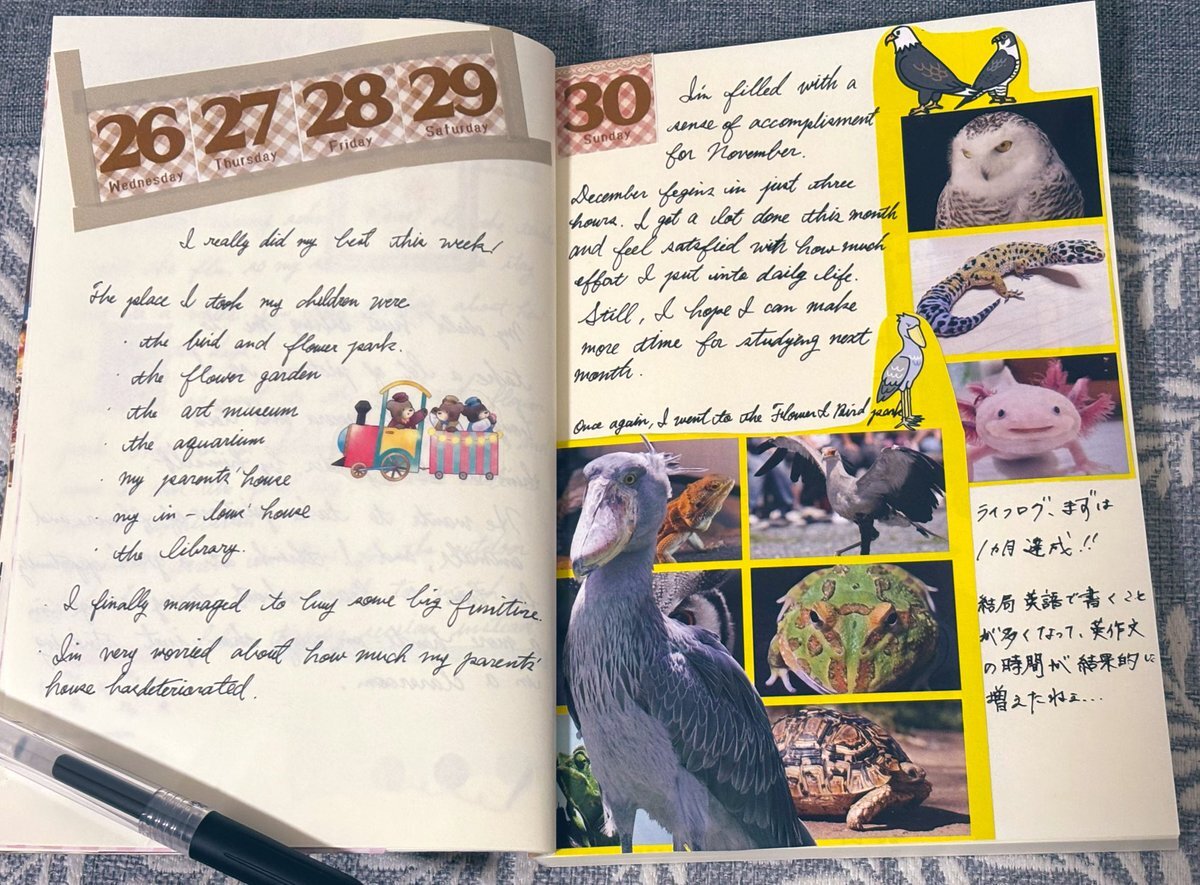 26
Wednesday
27
Thursday
28
Friday
29
Saturday
I really did my best this week!
The place I took my children were
· the bird and flower park.
· the flower garden
· the art museum
· the aquarium
· my parents' house
· my in-laws' house
· the library.
· I finally managed to buy some big funitire.
· I'm very worried about how much my parents'
house has deteriorated.
30
Sunday
I'm filled with a
sense of accomplisment
for November.
December begins in just three
hours. I got a lot done this month
and feel satsfied with how much
effort I put into daily life.
Still, I hope I can make
more time for studying next
month.
Once again, I went to the Flower & Bird park
ライフログ、まずは
1ヵ月達成!!
結局英語で書くこと
が多くなって、英作文
の時間が結果的に
増えたねェ...